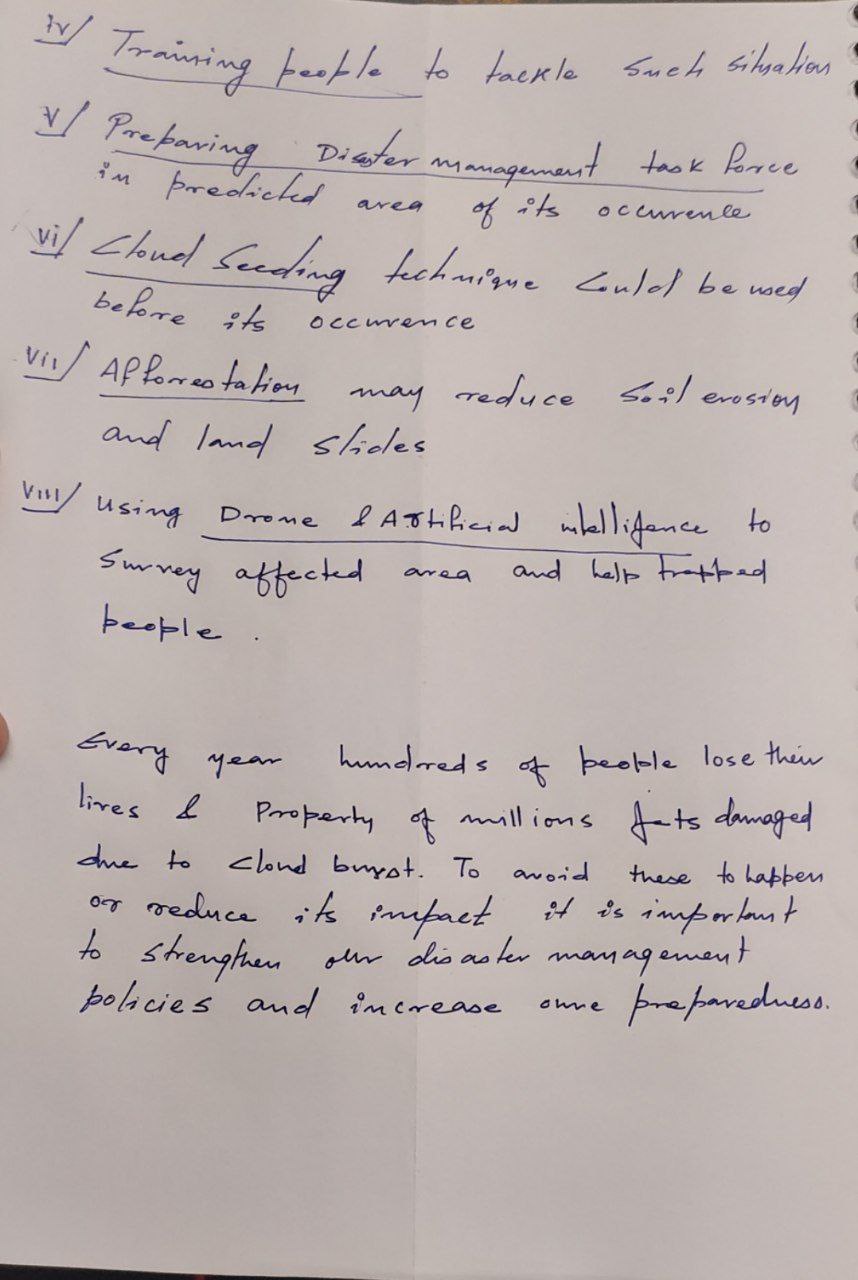 iv/ Training people to tackle such situation
v/ Preparing Disaster management task force
in predicted area of its occurrence
vi/ Cloud Seeding technique could be used
before its occurrence
vii/ Afforestation may reduce soil erosion
and land slides
viii/ Using Drone & Artificial intelligence to
Survey affected area and help trapped
people.
Every year hundreds of people lose their
lives & Property of millions gets damaged
due to cloud burst. To avoid these to happen
or reduce its impact it is important
to strengthen our disaster management
policies and increase our preparedness.